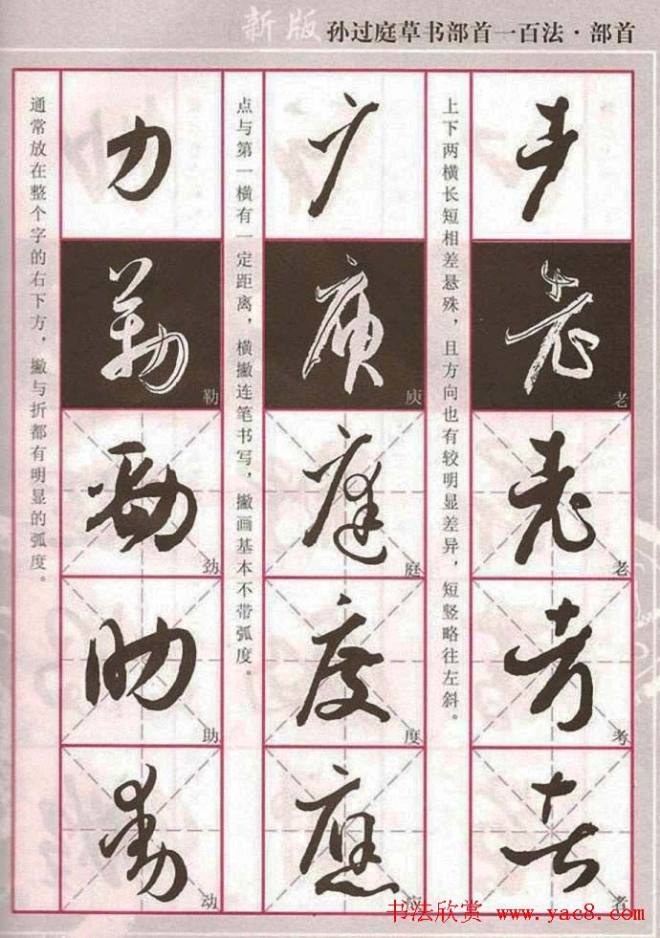 新版 孙过庭草书部首一百法·部首
上下两横长短相差悬殊，且方向也有较明显差异，短竖略往左斜。
耂
老
老
老
老
考
考
者
者
点与第一横有一定距离，横撇连笔书写，撇画基本不带弧度。
广
庚
庭
庭
度
度
應
通常放在整个字的右下方，撇与折都有明显的弧度。
力
勒
勒
劲
劲
助
助
动
书法欣赏 www.yac8.com